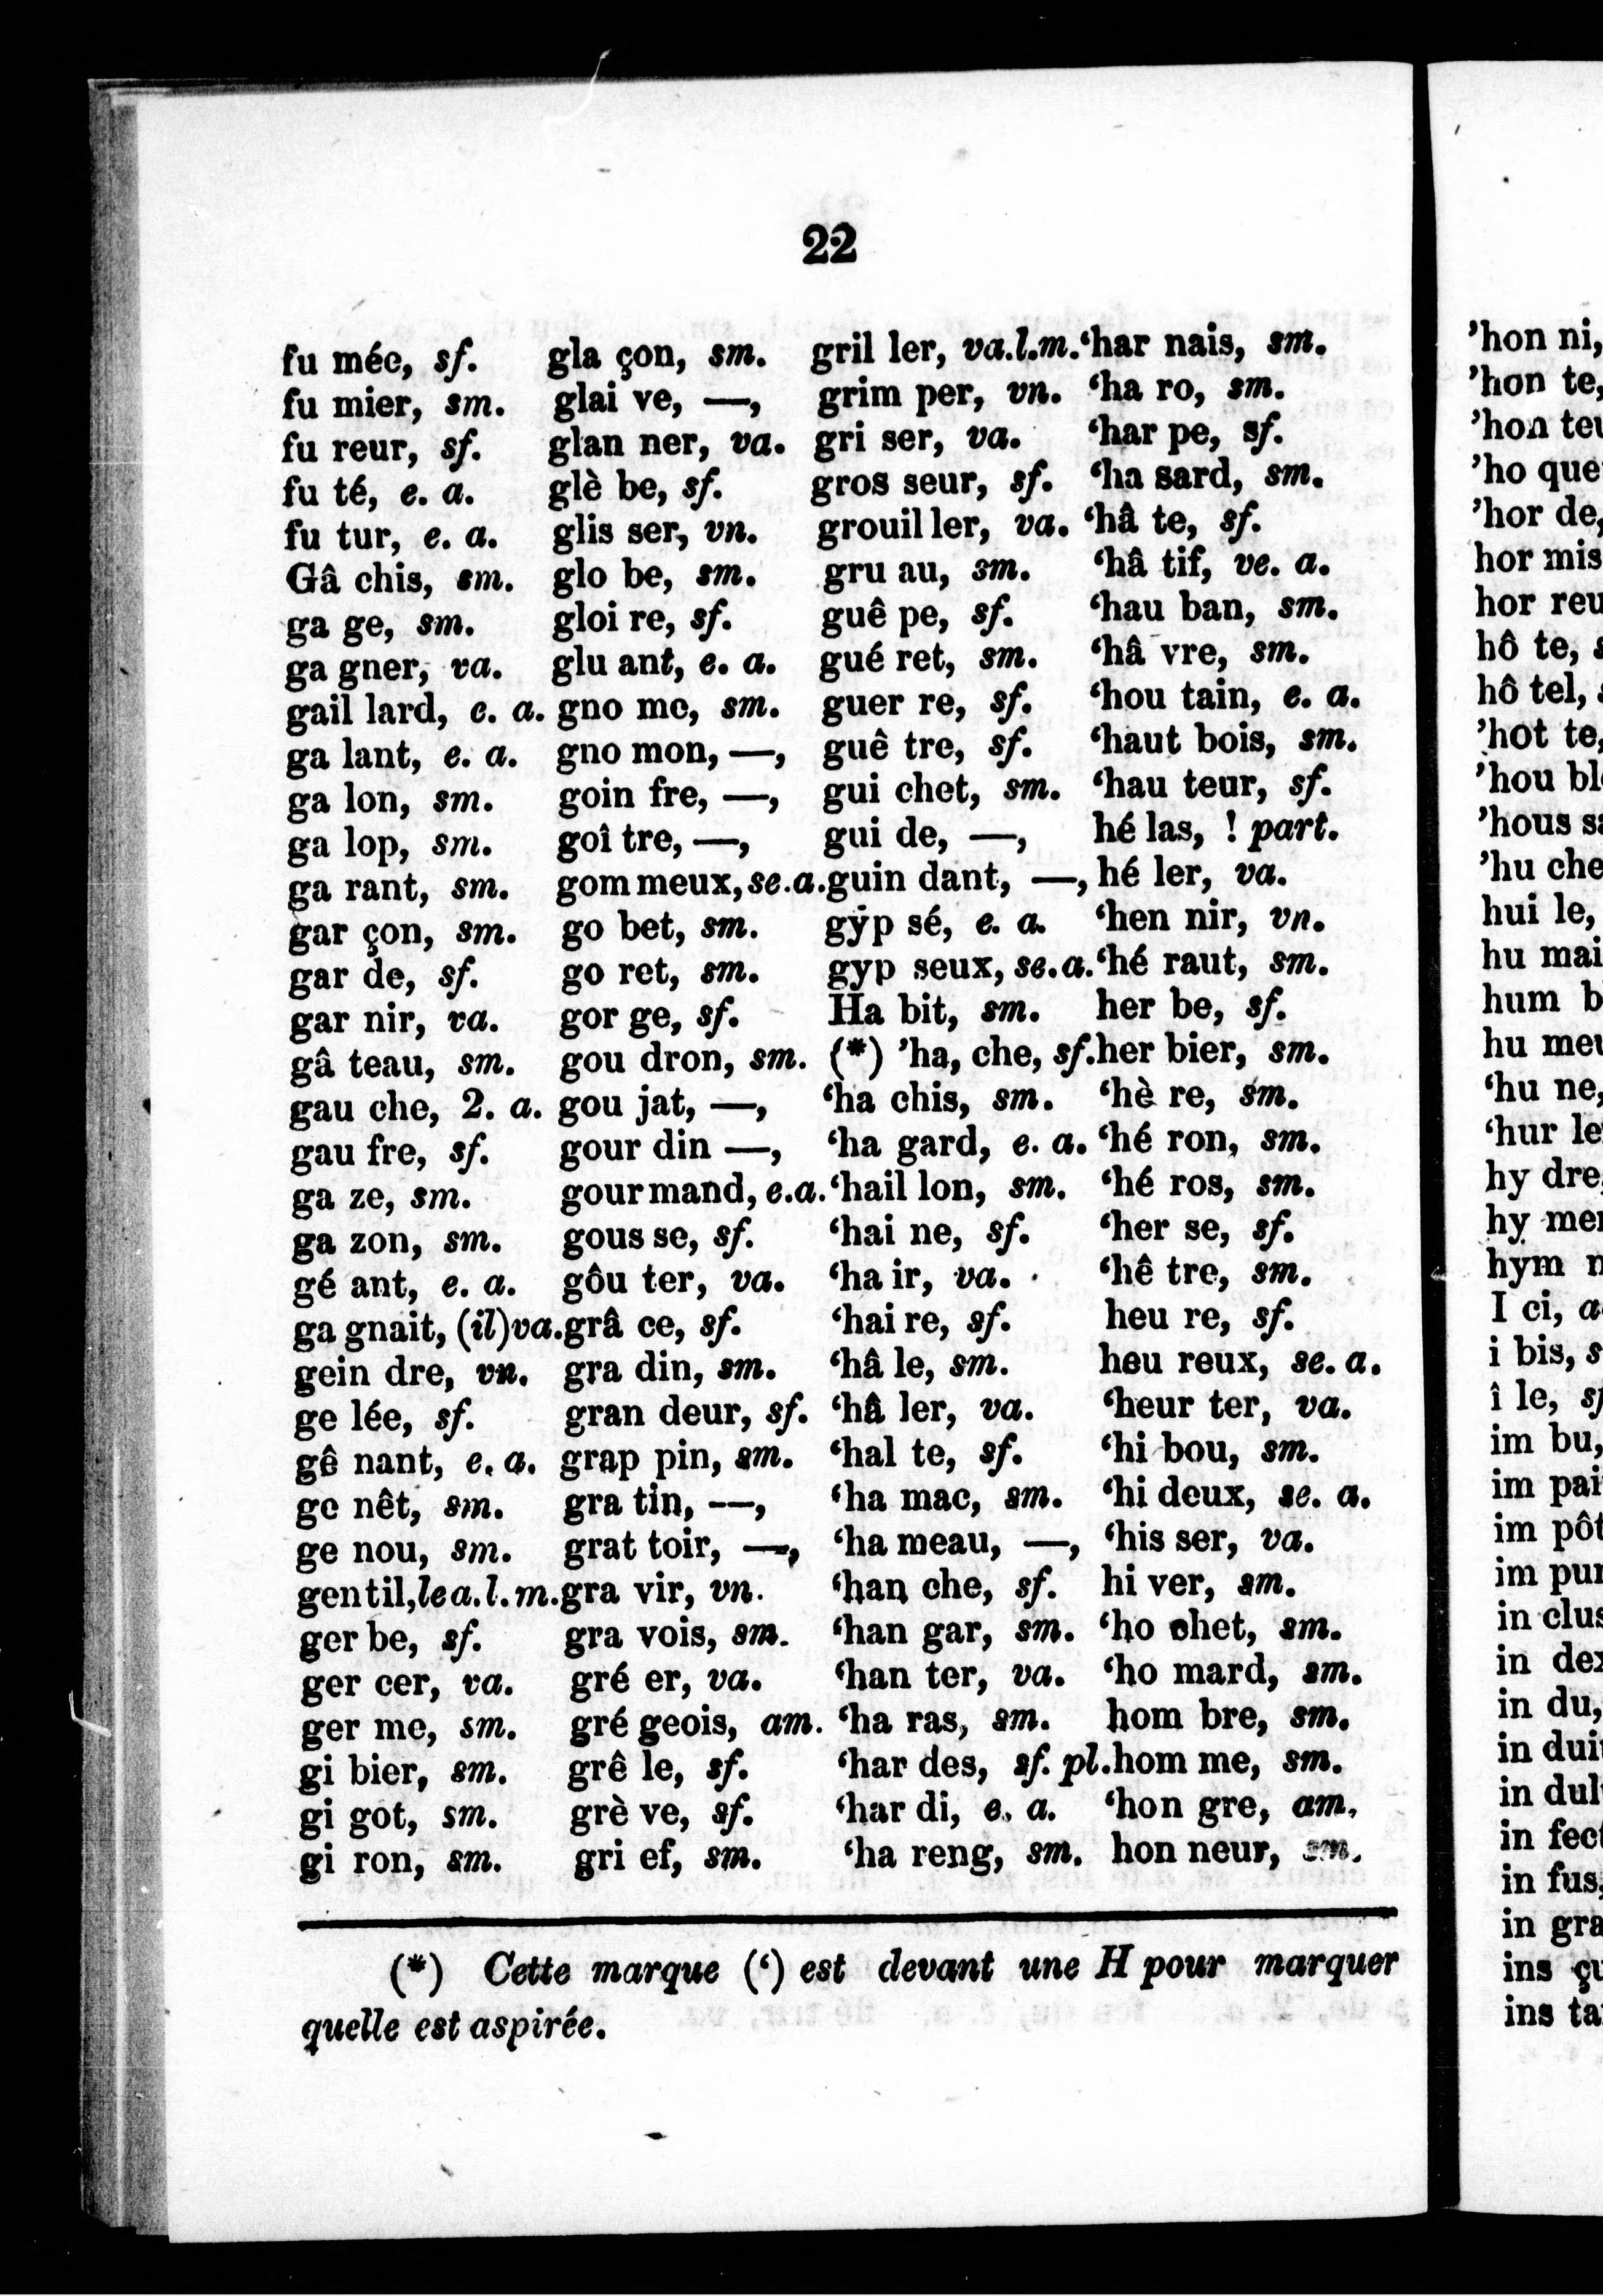 22
fu mée, sf.
fu mier, sm.
fu reur, sf.
fu té, e. a.
fu tur, e. a.
Gâ chis, sm.
ga ge, sm.
ga gner, va.
gail lard, e. a.
ga lant, e. a.
ga lon, sm.
ga lop, sm.
ga rant, sm.
gar çon, sm.
gar de, sf.
gar nir, va.
gâ teau, sm.
gau che, 2. a.
gau fre, sf.
ga ze, sm.
ga zon, sm.
gé ant, e. a.
ga gnait, (il) va.
gein dre, vn.
ge lée, sf.
gê nant, e. a.
ge nêt, sm.
ge nou, sm.
gen til, le a. l. m.
ger be, sf.
ger cer, va.
ger me, sm.
gi bier, sm.
gi got, sm.
gi ron, sm.
gla çon, sm.
glai ve, —,
glan ner, va.
glè be, sf.
glis ser, vn.
glo be, sm.
gloi re, sf.
glu ant, e. a.
gno me, sm.
gno mon, —,
goin fre, —,
goî tre, —,
gom meux, se. a.
go bet, sm.
go ret, sm.
gor ge, sf.
gou dron, sm.
gou jat, —,
gour din —,
gour mand, e. a.
gous se, sf.
gôu ter, va.
grâ ce, sf.
gra din, sm.
gran deur, sf.
grap pin, sm.
gra tin, —,
grat toir, —,
gra vir, vn.
gra vois, sm.
gré er, va.
gré geois, am.
grê le, sf.
grè ve, sf.
gri ef, sm.
gril ler, va. l. m.
grim per, vn.
gri ser, va.
gros seur, sf.
grouil ler, va.
gru au, sm.
guê pe, sf.
gué ret, sm.
guer re, sf.
guê tre, sf.
gui chet, sm.
gui de, —,
guin dant, —,
gÿp sé, e. a.
gyp seux, se. a.
Ha bit, sm.
(*) ’ha, che, sf.
‘ha chis, sm.
‘ha gard, e. a.
‘hail lon, sm.
‘hai ne, sf.
‘ha ir, va.
‘hai re, sf.
‘hâ le, sm.
‘hâ ler, va.
‘hal te, sf.
‘ha mac, sm.
‘ha meau, —,
‘han che, sf.
‘han gar, sm.
‘han ter, va.
‘ha ras, sm.
‘har des, sf. pl.
‘har di, e. a.
‘ha reng, sm.
‘har nais, sm.
‘ha ro, sm.
‘har pe, sf.
‘ha sard, sm.
‘hâ te, sf.
‘hâ tif, ve. a.
‘hau ban, sm.
‘hâ vre, sm.
‘hou tain, e. a.
‘haut bois, sm.
‘hau teur, sf.
hé las, ! part.
hé ler, va.
‘hen nir, vn.
‘hé raut, sm.
her be, sf.
her bier, sm.
‘hè re, sm.
‘hé ron, sm.
‘hé ros, sm.
‘her se, sf.
‘hê tre, sm.
heu re, sf.
heu reux, se. a.
‘heur ter, va.
‘hi bou, sm.
‘hi deux, se. a.
‘his ser, va.
hi ver, sm.
‘ho chet, sm.
‘ho mard, sm.
hom bre, sm.
hom me, sm.
‘hon gre, am.
hon neur, sm.
(*) Cette marque (‘) est devant une H pour marquer
quelle est aspirée.
’hon ni,
’hon te,
’hon teu
’ho que
’hor de,
hor mis
hor reu
hô te, s
hô tel, s
’hot te,
’hou bl
’hous s
’hu che
hui le,
hu mai
hum b
hu meu
‘hu ne,
‘hur le
hy dre,
hy me
hym n
I ci, a
i bis, s
î le, s
im bu,
im pai
im pôt
im pu
in clus
in de
in du,
in dui
in dul
in fec
in fus,
in gra
ins çu
ins ta